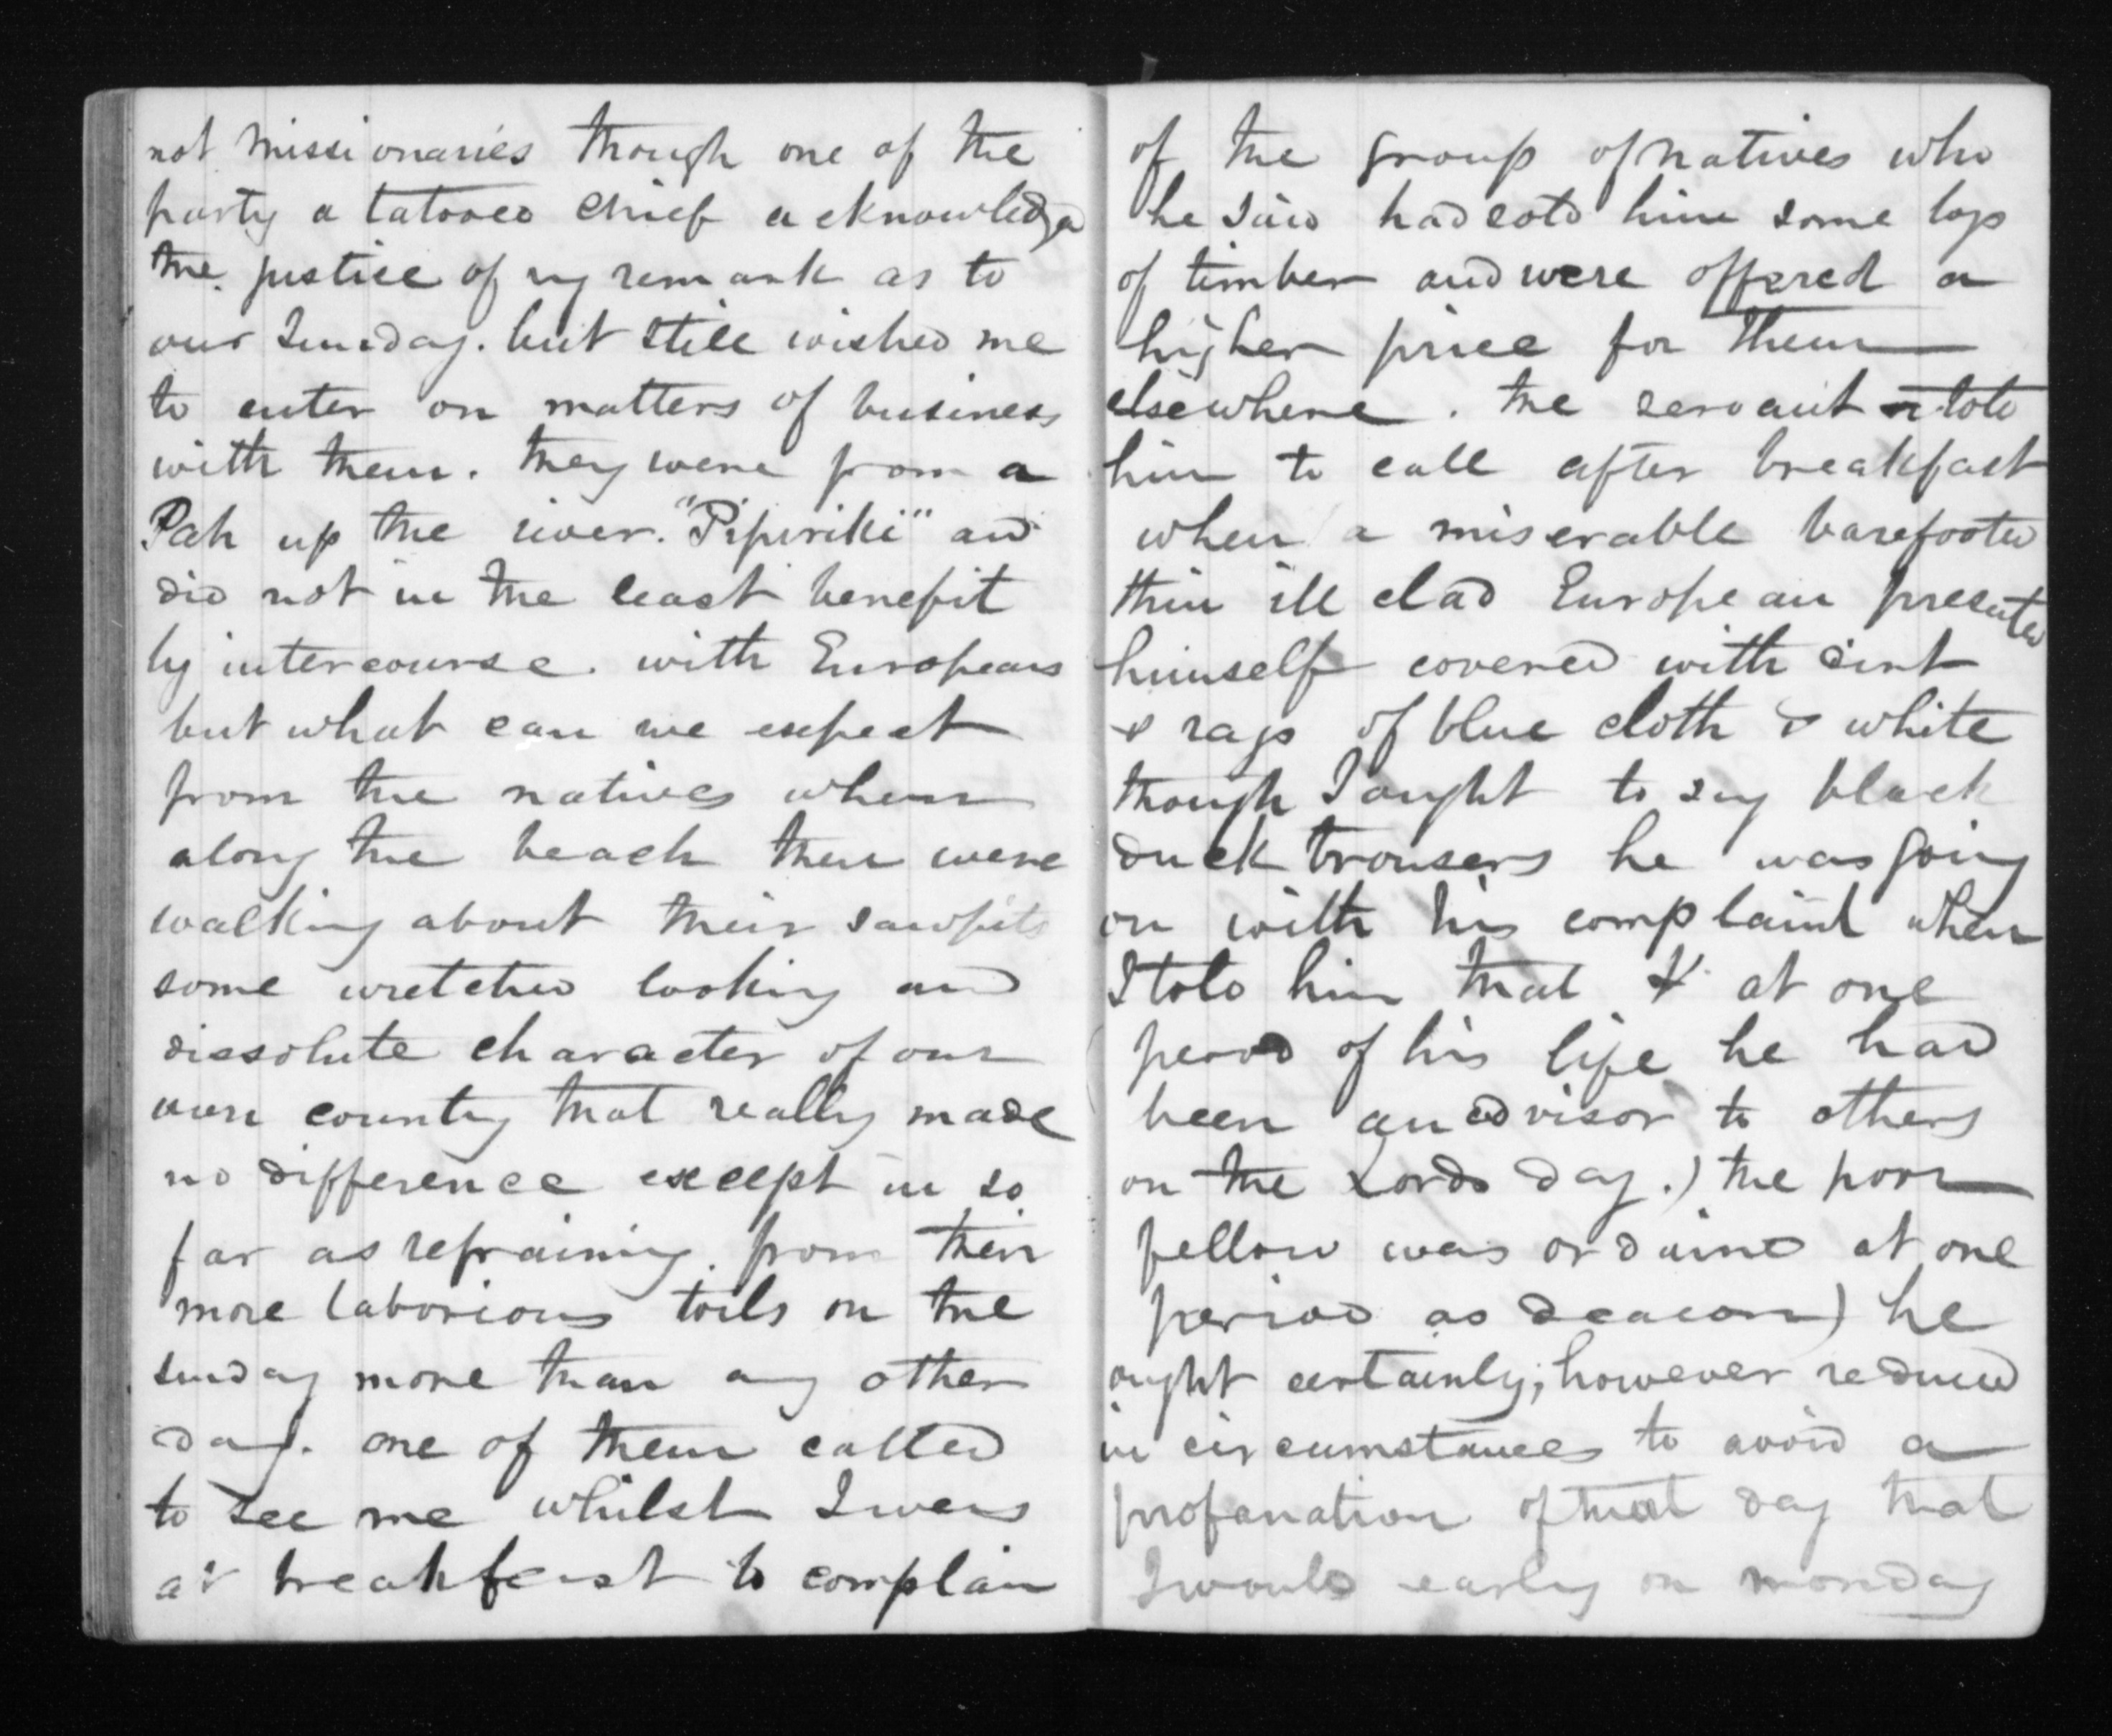 not missionaries though one of the
party a tatooed chief acknowledged
the justice of my remark as to
our Sunday. but still wished me
to enter on matters of business
with them. they were from a
Pah up the river. "Pipiriki" and
did not in the least benefit
by intercourse. with Europeans
but what can we expect
from the natives when
along the beach then were
walking about their sawpits
some wretched looking and
dissolute character of our
own country that really made
no difference except in so
far as refraining from their
more laborious toils on the
sunday more than any other
day. one of them called
to see me whilst I was
at breakfast to complain
of the group of natives who
he said had sold him some logs
of timber and were offered a
higher price for them
elsewhere. the servant told
him to call after breakfast
when a miserable barefooted
thin ill clad European presented
himself covered with dirt
& rags of blue cloth & white
though I ought to say black
duck trousers he was going
on with his complaint when
I told him that at one
period of his life he had
been an advisor to others
on the Lords day.) the poor
fellow was ordaind at one
period as deacon) he
ought certainly; however reduced
in circumstances to avoid a
profanation of that day that
I would early on monday